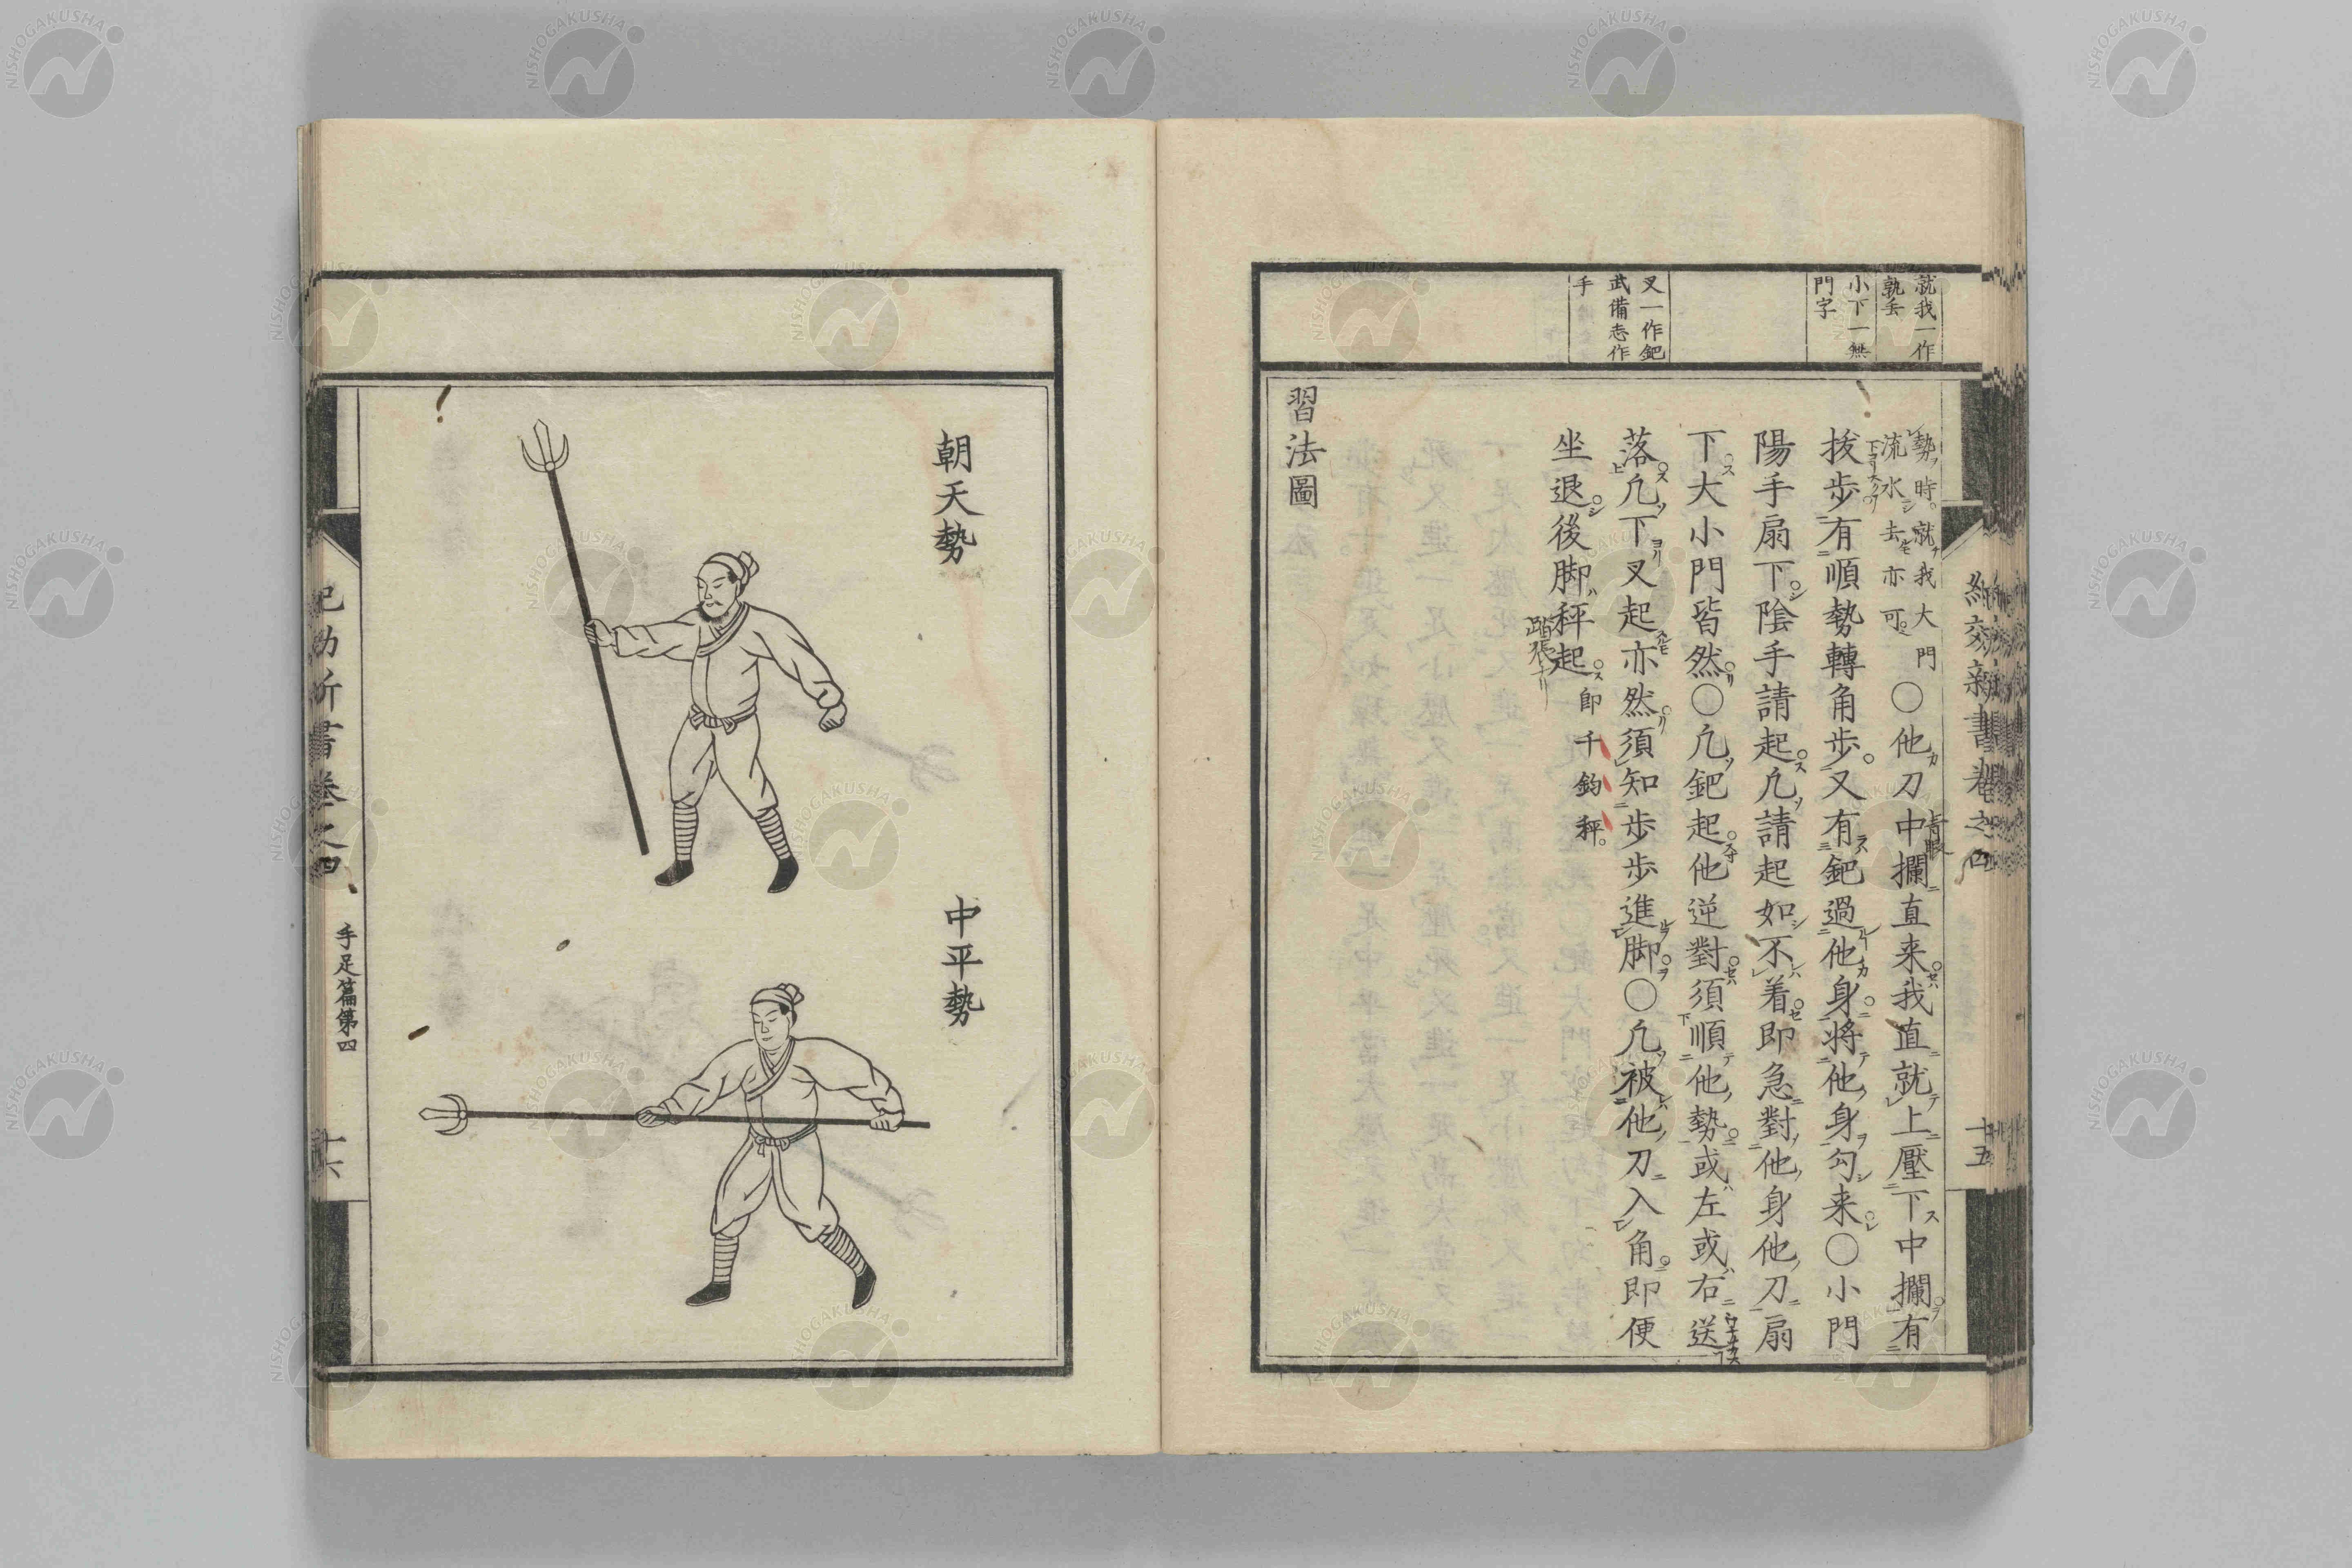 就我一作
孰丢
小下一無
門字
叉一作鈀
武備志作
手
紀効新書卷之四
十五
勢時。就我大門
流水去亦可。
○他刀中攔直来我直就上壓下中攔有
拔步有順勢轉角步又有鈀過他身将他身勾来○小門
陽手扇下陰手請起凢請起如不着即急對他身他刀扇
下大小門皆然○凢鈀起他逆對須順他勢或左或右送
落凢下叉起亦然須知步步進脚○凢被他刀入角即便
坐退後脚秤起即千鈞秤。
習法圖
朝天勢
中平勢
紀効新書卷之四
手足篇第四
十六
NISHOGAKUSHA